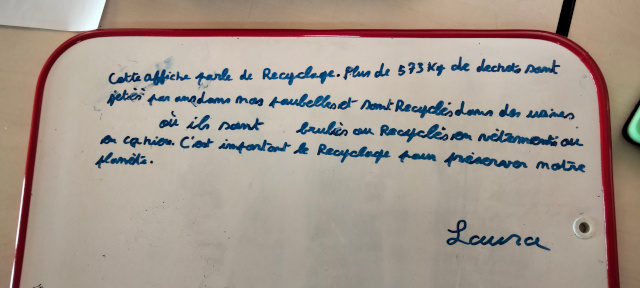 Cette affiche parle de Recyclage. Plus de 573 Kg de dechets sont
jetés par ans dans nos poubelles et sont Recyclés dans des usines
où ils sont brulés ou Recyclés en vêtements ou
en cahier. C'est important le Recyclage pour préserver notre
planète.
Laura